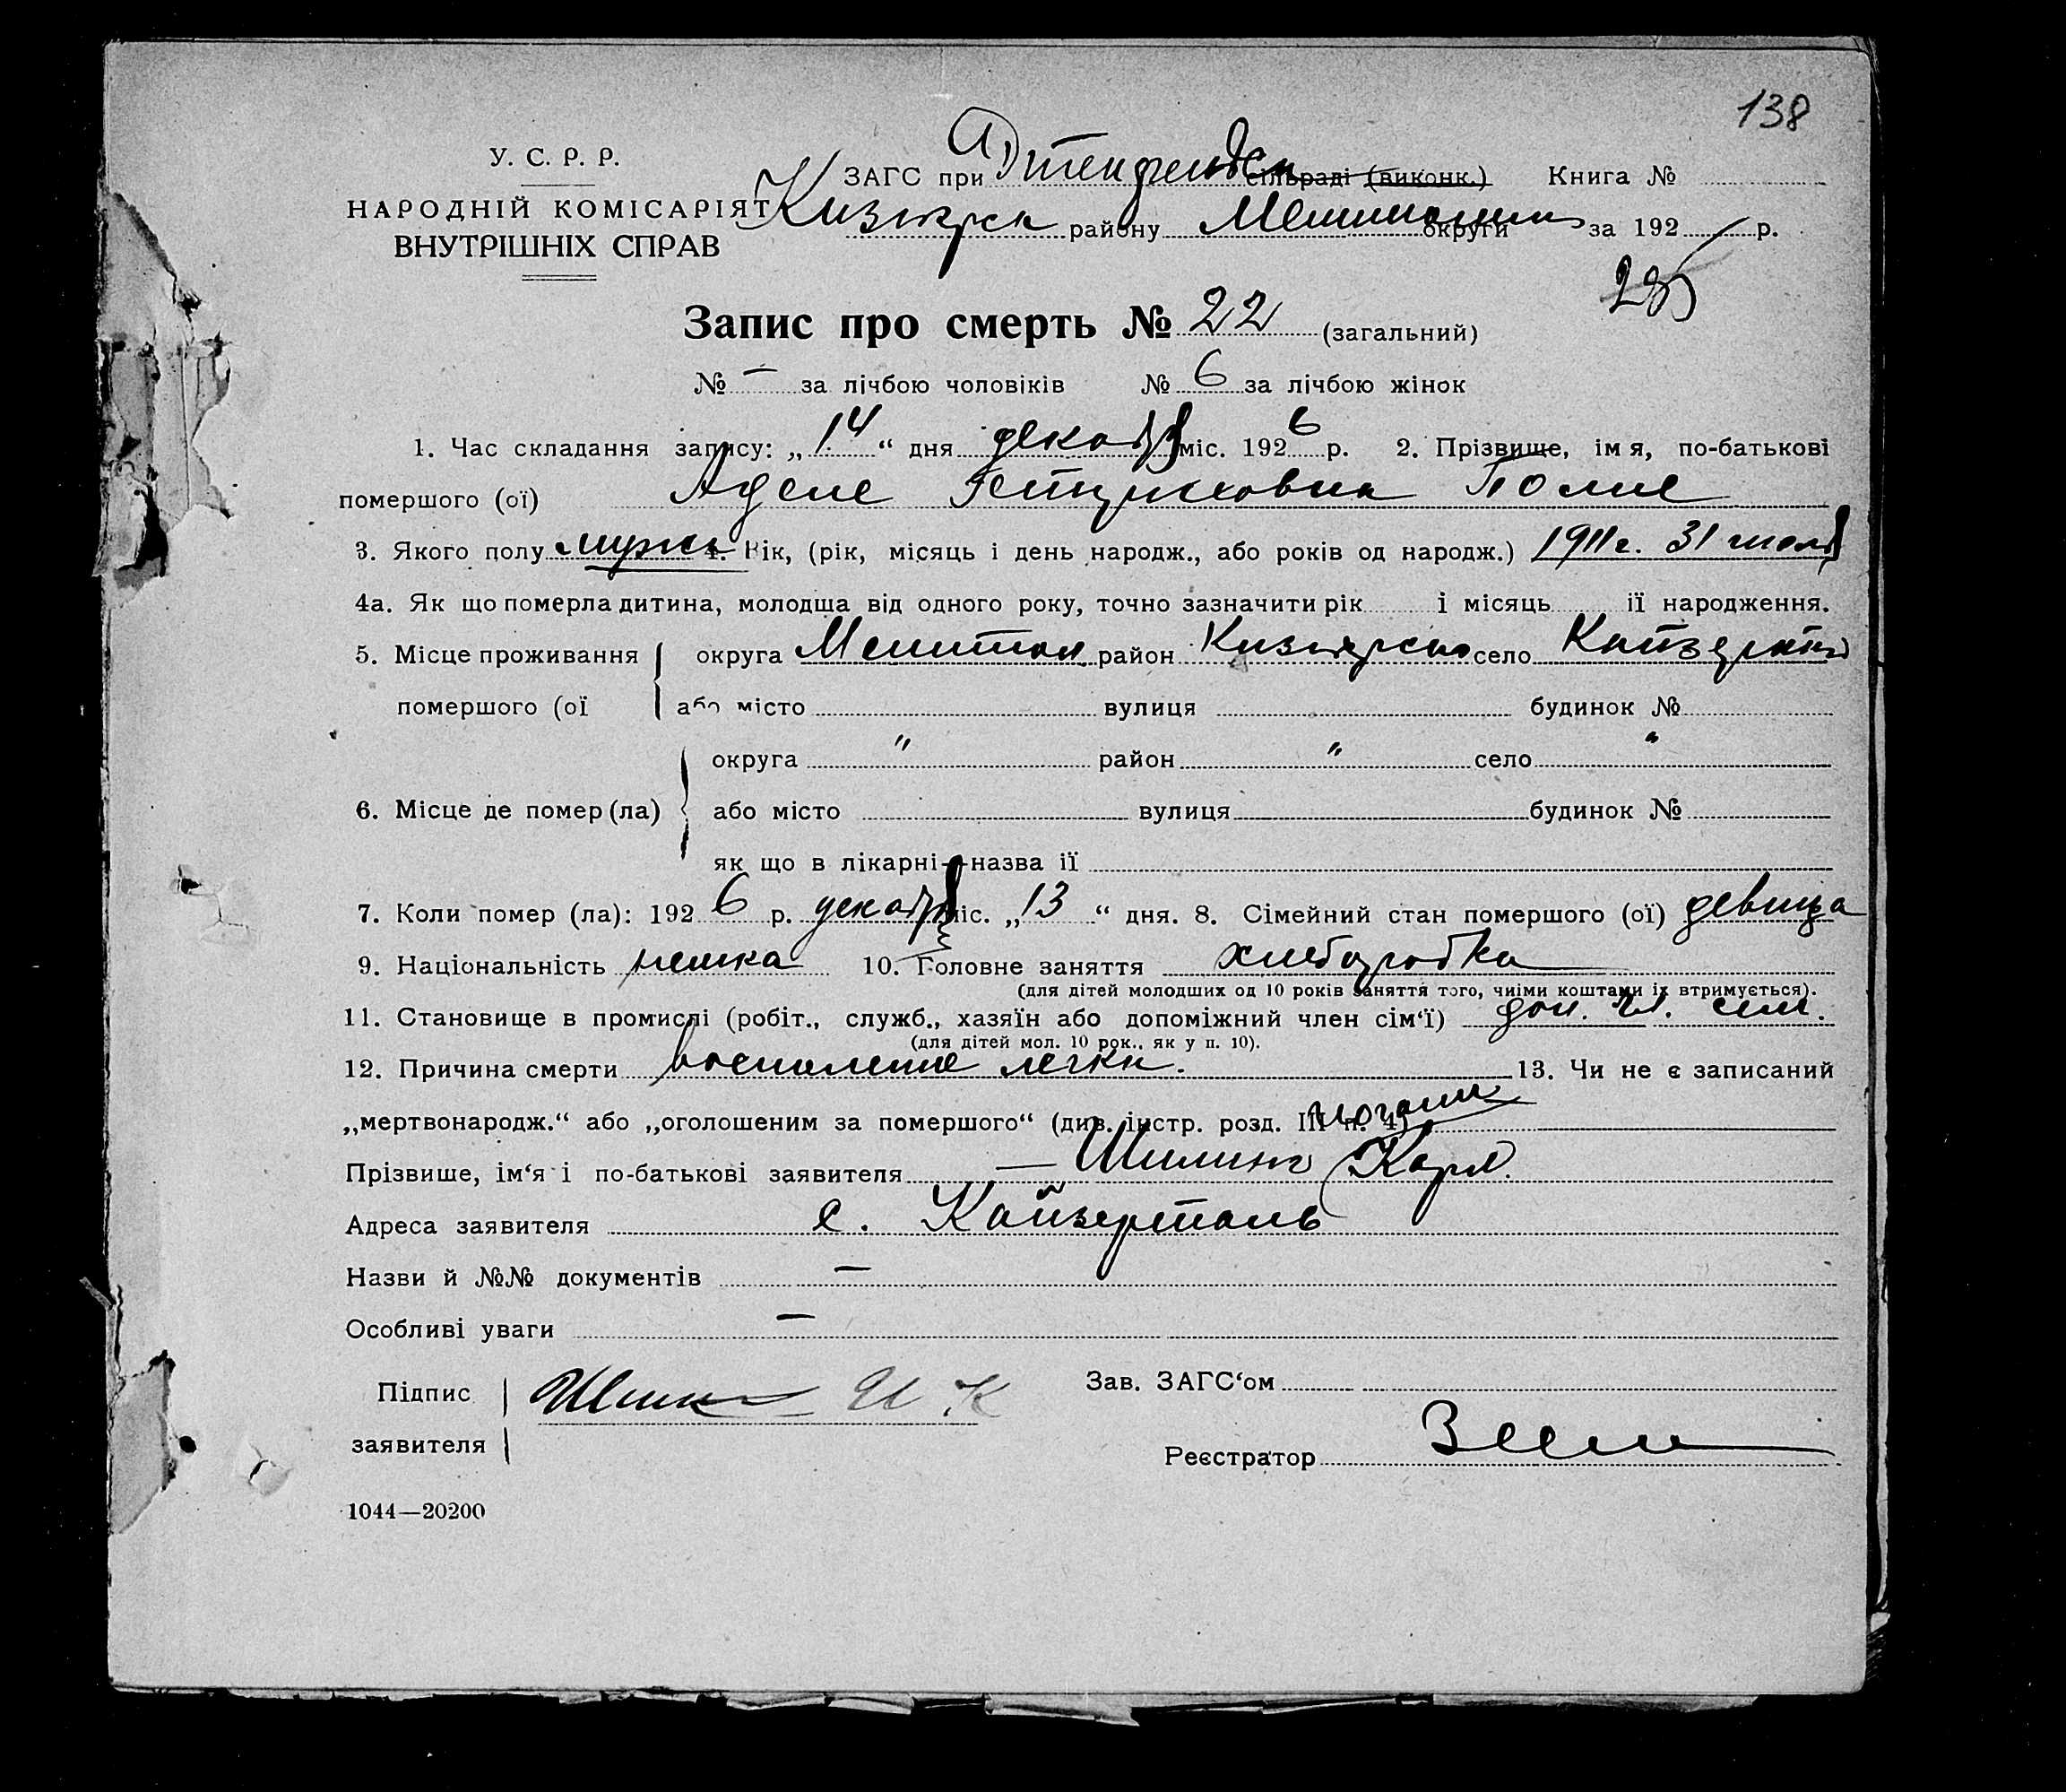 138
У. С. Р. Р.
НАРОДНІЙ КОМІСАРІЯТ
ВНУТРІШНІХ СПРАВ
ЗАГС при сільраді (виконк.) Книга №
району округи за 192 р.
Запис про смерть № 22 (загальний)
№ — за лічбою чоловіків № 6 за лічбою жінок
1. Час складання запису: „14“ дня декабря міс. 1926 р. 2. Прізвище, імя, по-батькові
помершого (ої) Аделе Гейнриховна Полле
3. Якого полу мужс 4. Вік, (рік, місяць і день народж., або років од народж.) 1911 г. 31 июля
4а. Як що померла дитина, молодща від одного року, точно зазначити рік і місяць її народження.
5. Місце проживання округа Мелитоп район Кизиярско село
помершого (ої або місто вулиця будинок №
округа " район " село "
6. Місце де помер (ла) або місто вулиця будинок №
як що в лікарні—назва її
7. Коли помер (ла): 1926 р. декабря міс. „13“ дня. 8. Сімейний стан помершого (ої) девица
9. Національність немка 10. Головне заняття хлеборобка
(для дітей молодших од 10 років заняття того, чиїми коштами їх втримується).
11. Становище в промислі (робіт., служб., хазяїн або допоміжний член сім‘ї) доп. чл. сем.
(для дітей мол. 10 рок., як у п. 10).
12. Причина смерти воспаление легки. 13. Чи не є записаний
„мертвонародж.“ або „оголошеним за помершого“ (див. інстр. розд. III п. 4)
Прізвище, ім‘я і по-батькові заявителя — Шиллинг Карл.
Адреса заявителя с. Кайзерталь
Назви й №№ документів —
Особливі уваги —
Підпис И К Зав. ЗАГС‘ом
заявителя Реєстратор
1044—20200